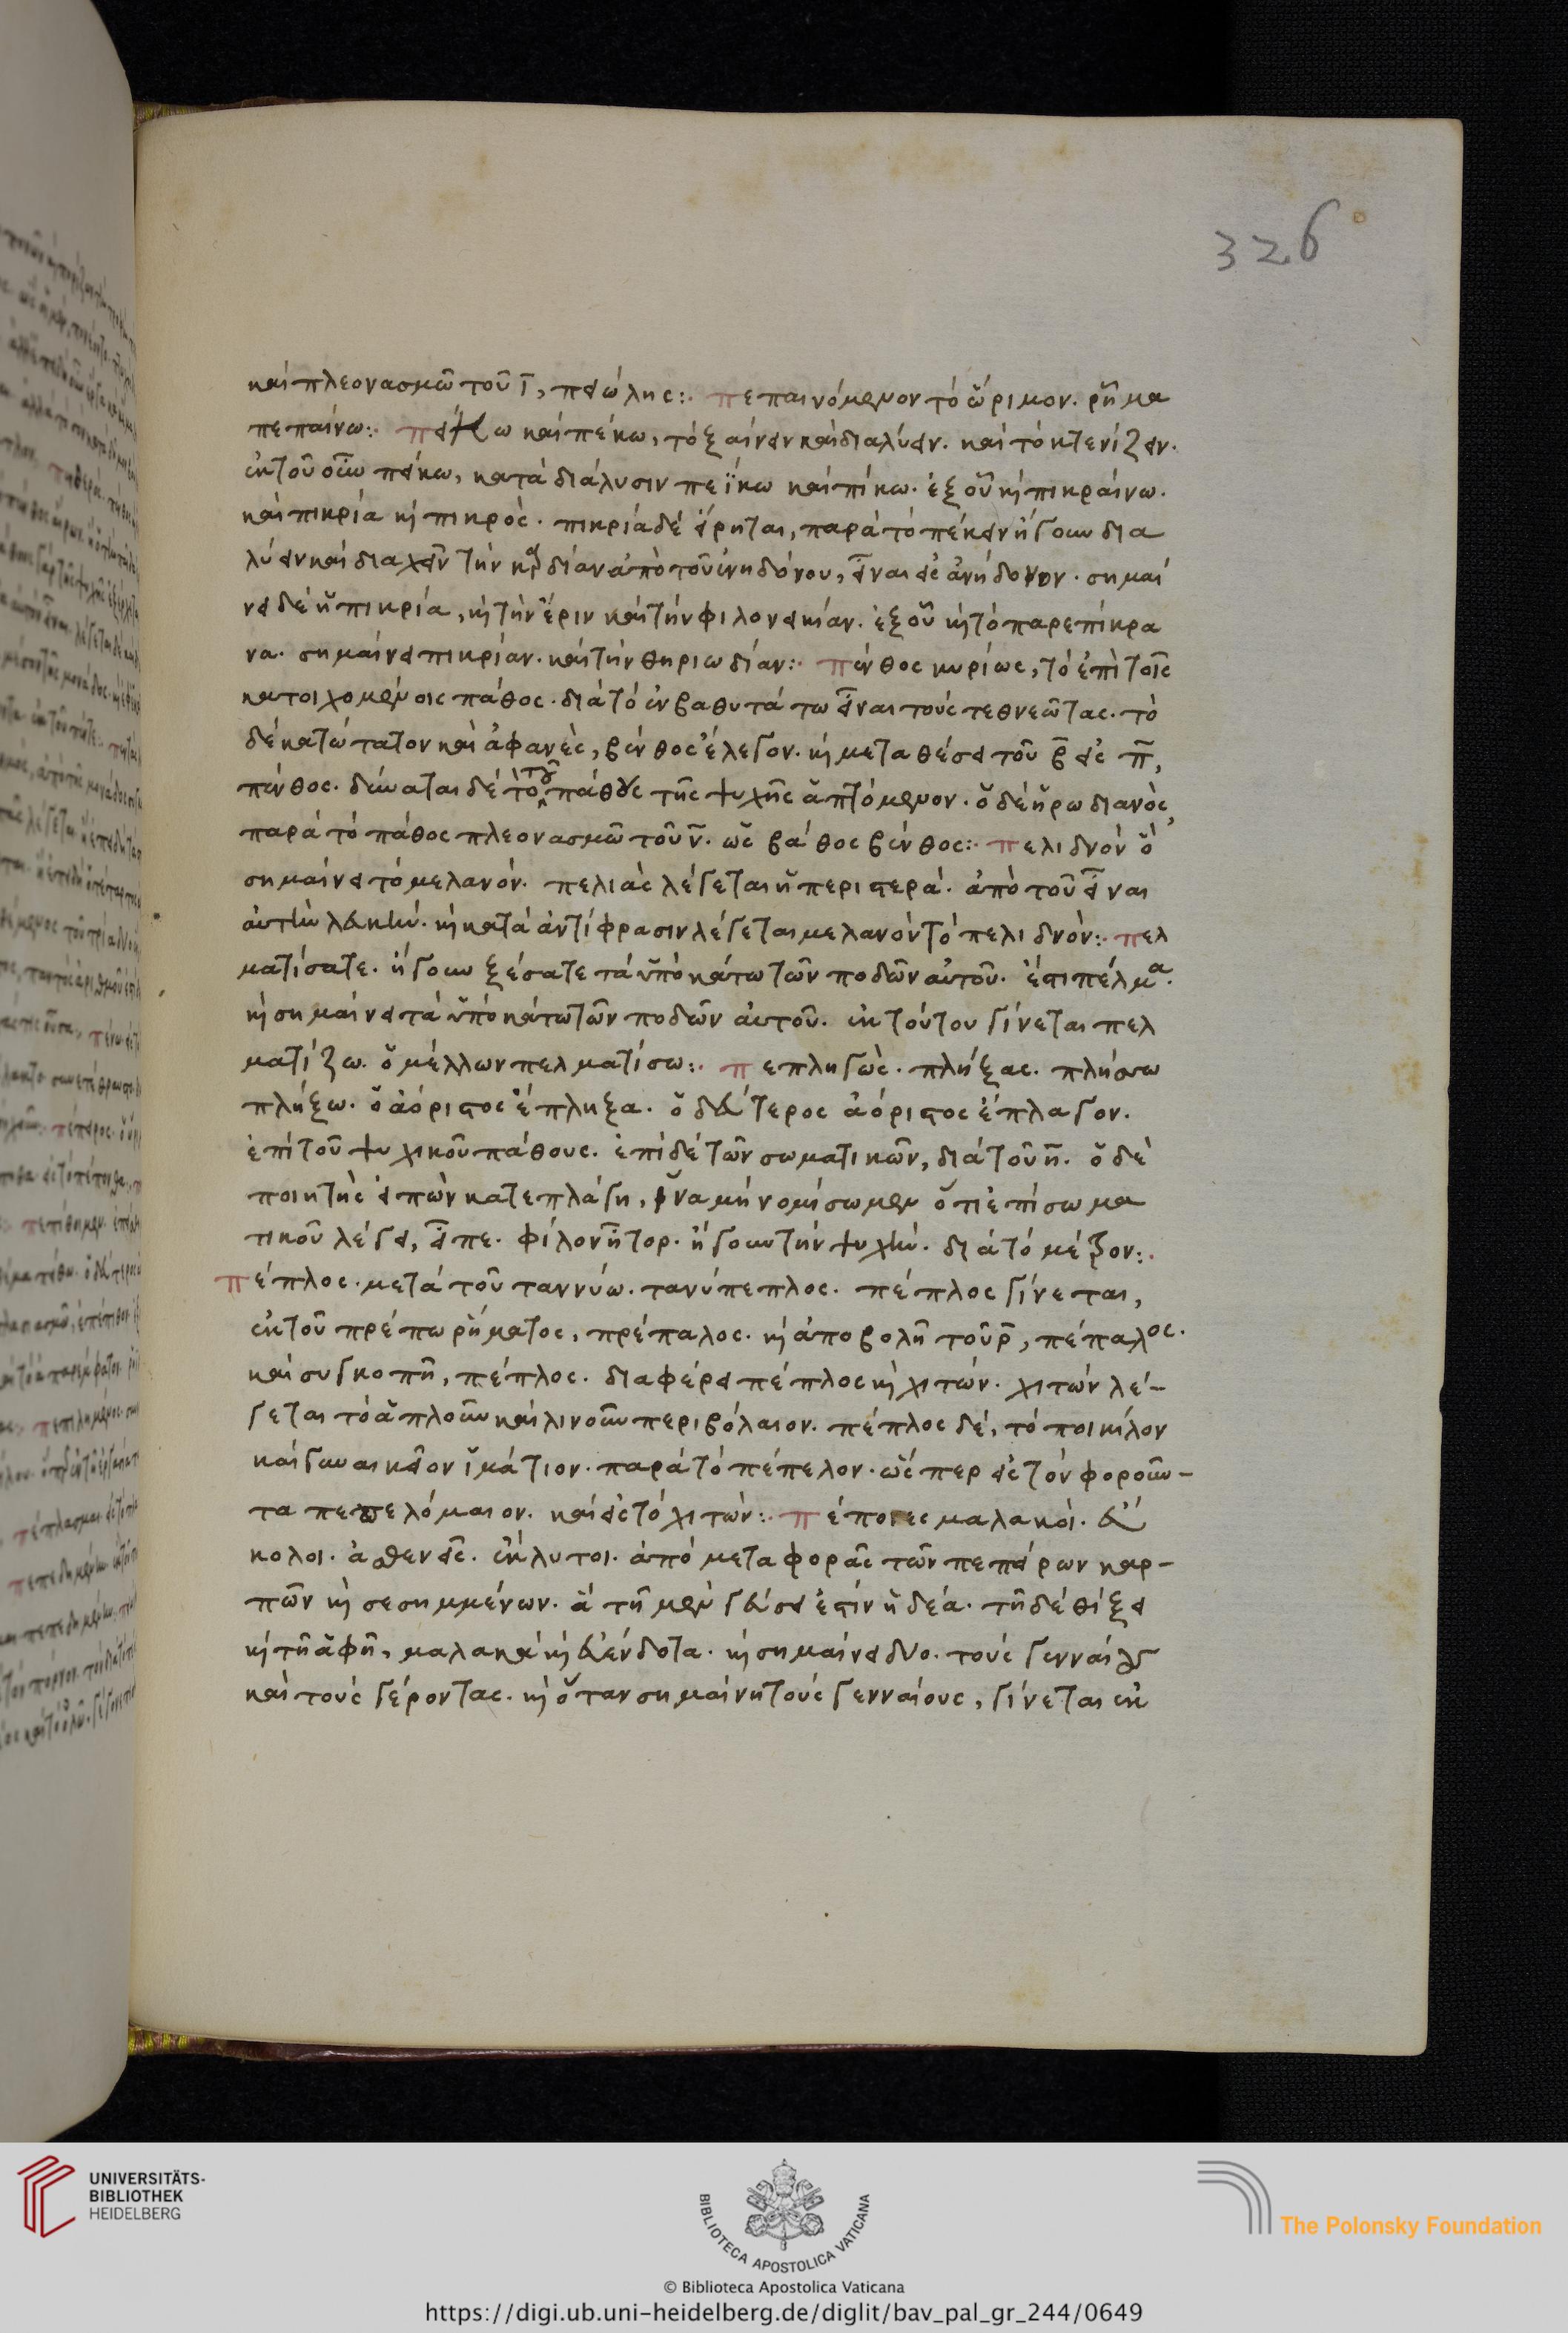 326
καὶ πλεονασμῶ τοῦ ῑ, πειώλης:· πεπαινόμενον τὸ ὥριμον. ῥῆμα
πεπαίνω:· πείκω καὶ πέκω, τὸ ξαίνειν καὶ διαλύειν. καὶ τὸ κτενίζειν.
ἐκ τοῦ οὖν πείκω, κατὰ διάλυσιν πεΐκω καὶ πίκω. ἐξ οὗ κὶ πικραίνω.
καὶ πικρία κὶ πικρὸς. πικρία δὲ εἴρηται, παρὰ τὸ πέκειν ἤγουν δια
λύειν καὶ διαχεῖν τὴν καρδίαν ἀπὸ τοῦ ἐνηδόνου, εἶναι εἰς ἀνήδονον. σημαί
νει δὲ ἡ πικρία, κὶ τὴν ἔριν καὶ τὴν φιλονεικίαν. ἐξ οὗ κὶ τὸ παρεπίκρα
να. σημαίνει πικρίαν. καὶ τὴν θηριωδίαν:· πένθος κυρίως, τὸ ἐπὶ τοῖς
κατοιχομένοις πάθος. διὰ τὸ ἐν βαθυτάτω εἶναι τοὺς τεθνεῶτας. τὸ
δὲ κατώτατον καὶ ἀφανὲς, βένθος ἔλεγον. κὶ μεταθέσει τοῦ β̄ εἰς π̄,
πένθος. δύναται δὲ τὸ τοῦ πάθους τῆς ψυχῆς ἁπτόμενον. ὁ δὲ ἡρωδιανὸς,
παρὰ τὸ πάθος πλεονασμῶ τοῦ ν̄. ὡς βάθος βένθος:· πελιδνὸν ὃ
σημαίνει τὸ μελανόν. πελιὰς λέγεται ἡ περιστερά. ἀπὸ τοῦ εἶναι
αὐτὴν λευκήν. κὶ κατὰ ἀντίφρασιν λέγεται μελανὸν τὸ πελιδνὸν:· πελ
ματίσατε. ἤγουν ξέσατε τὰ ὑποκάτω τῶν ποδῶν αὐτοῦ. ἔστι πέλμα.
κὶ σημαίνει τὰ ὑποκάτω τῶν ποδῶν αὐτοῦ. ἐκ τούτου γίνεται πελ
ματίζω. ὁ μέλλων πελματίσω:· πεπληγὼς. πλήξας. πλήσσω
πλήξω. ὁ ἀόριστος ἔπληξα. ὁ δεύτερος ἀόριστος ἔπλαγον.
ἐπὶ τοῦ ψυχικοῦ πάθους. ἐπὶ δὲ τῶν σωματικῶν, διὰ τοῦ η̄. ὁ δὲ
ποιητὴς εἰπὼν κατεπλάγη, ἵνα μὴ νομίσωμεν ὅτι ἐπὶ σωμα
τικοῦ λέγει, εἶπε. φίλον ἦτορ. ἤγουν τὴν ψυχήν. διὰ τὸ μεῖζον:·
πέπλος. μετὰ τοῦ ταννύω. τανύπεπλος. πέπλος γίνεται,
ἐκ τοῦ πρέπω ῥήματος, πρέπαλος. κὶ ἀποβολῆ τοῦ ρ̄, πέπαλος.
καὶ συγκοπῆ, πέπλος. διαφέρει πέπλος κὶ χιτών. χιτὼν λέ-
γεται τὸ ἁπλοῦν καὶ λινοῦν περιβόλαιον. πέπλος δὲ, τὸ ποικίλον
καὶ γυναικεῖον ἱμάτιον. παρὰ τὸ πέπελον. ὥσπερ εἰς τὸν φοροῦν-
τα πεπελόμαιον. καὶ εἰς τὸ χιτών:· πέπονες μαλακοὶ. εὔ
κολοι. ἀσθενεῖς. ἔκλυτοι. ἀπὸ μεταφορᾶς τῶν πεπείρων καρ-
πῶν κὶ σεσημμένων. ἃ τῆ μὲν γεύσει ἐστὶν ἡδέα. τῆ δὲ θίξει
κὶ τῆ ἁφῆ, μαλακὰ κὶ εὐένδοτα. κὶ σημαίνει δύο. τοὺς γενναίους
καὶ τοὺς γέροντας. κὶ ὅταν σημαίνη τοὺς γενναίους, γίνεται ἐκ
UNIVERSITÄTS-
BIBLIOTHEK
HEIDELBERG
BIBLIOTECA APOSTOLICA VATICANA
The Polonsky Foundation
© Biblioteca Apostolica Vaticana
https://digi.ub.uni-heidelberg.de/diglit/bav_pal_gr_244/0649